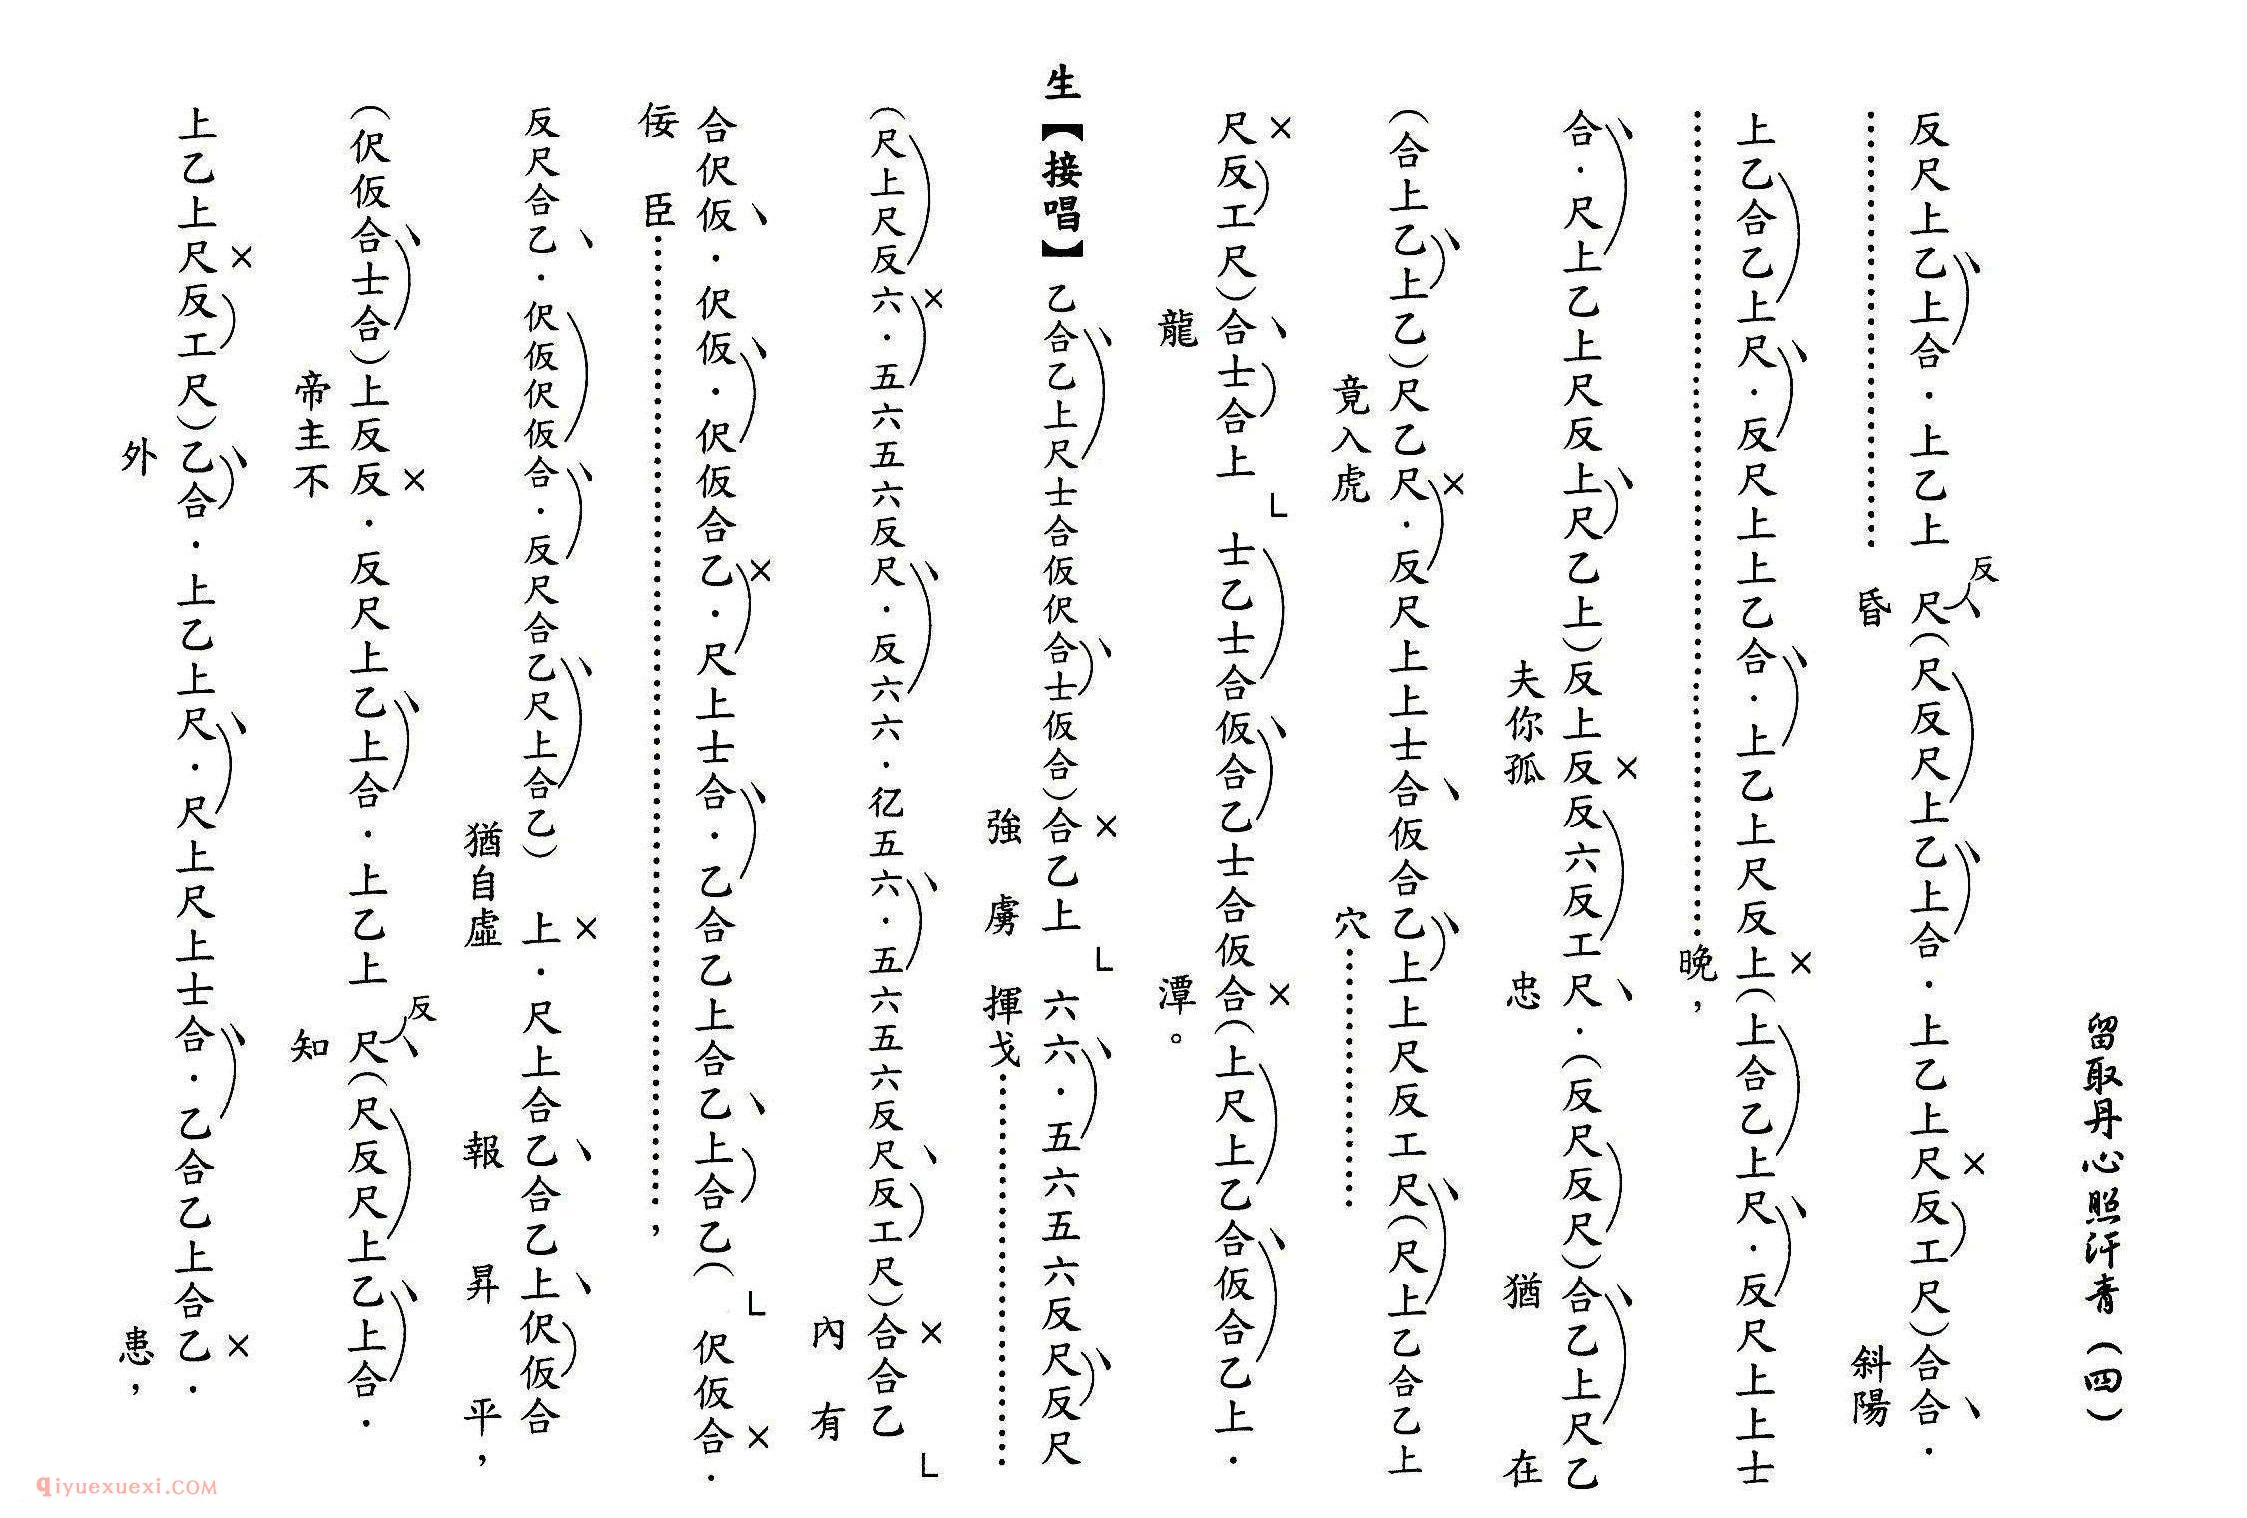 留取丹心照汗青（四）
反尺上乙上合．上乙上 尺反（尺反尺上乙上合．上乙上尺反工尺）合合．
昏 斜陽
上乙合乙上尺．反尺上上乙合．上乙上尺反上（上合乙上尺．反尺上上士
晚，
合．尺上乙上尺反上尺乙上）反上反反六反工尺．（反尺反尺）合乙上尺乙
夫你孤 忠 猶 在
（合上乙上乙）尺乙尺．反尺上上士合仮合乙上上尺反工尺（尺上乙合乙上
竟入虎 穴
尺反工尺）合士合上 士乙士合仮合乙士合仮合（上尺上乙合仮合乙上．
龍 潭。
生【（接唱）】乙合乙上尺士合仮伬合士仮合）合乙上 六六．五六五六反尺反尺
強 虜 揮戈
（尺上尺反六．五六五六反尺．反六六．亿五六．五六五六反尺反工尺）合合乙
內 有
合伬仮．伬仮．伬仮合乙．尺上士合．乙合乙上合乙上合乙（ 伬仮合．
佞 臣 ，
反尺合乙．伬仮伬仮合．反尺合乙尺上合乙） 上．尺上合乙合乙上伬仮合
猶自虛 報 昇 平，
（伬仮合士合）上反反．反尺上乙上合．上乙上 尺反（尺反尺上乙上合．
帝主不 知
上乙上尺反工尺）乙合．上乙上尺．尺上尺上士合．乙合乙上合乙．
外 患，
qiyuexuexi.com